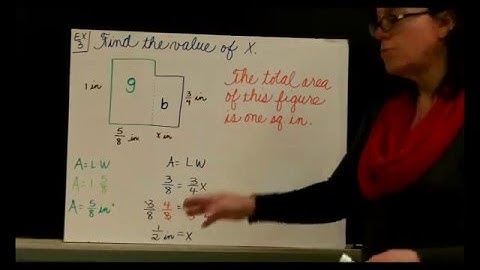 EX 3
Find the value of X.
1 in
g
b
3/4 in
5/8 in
x in
The total area
of this figure
is one sq in.
A = LW
A = 1 · 5/8
A = 5/8 in²
A = LW
3/8 = 3/4 X
3/8 · 4/8 =
1/2 in = X